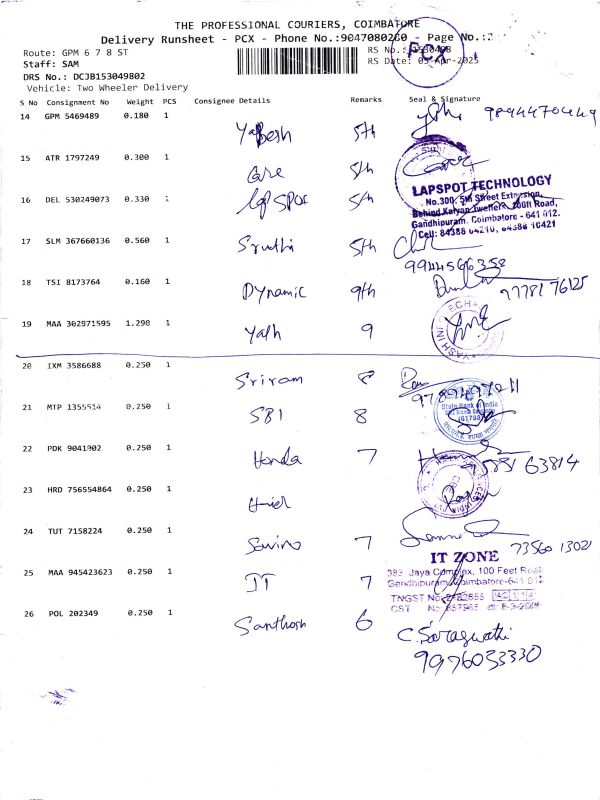 THE PROFESSIONAL COURIERS, COIMBATORE
Delivery Runsheet - PCX - Phone No.:9047080260 - Page No.:2
Route: GPM 6 7 8 ST
RS No.:
Staff: SAM
RS Date: 05-Apr-2025
PCX
DRS No.: DCJB153049802
Vehicle: Two Wheeler Delivery
S No Consignment No Weight PCS Consignee Details Remarks Seal & Signature
14 GPM 5469489 0.180 1 5th 9894470449
15 ATR 1797249 0.300 1 5th
16 DEL 530249073 0.330 5th
LAPSPOT TECHNOLOGY
No.300, 5th Street Extension,
Behind Kalyan Jwellers, 100ft Road,
Gandhipuram, Coimbatore - 641 012.
17 SLM 367660136 0.560 1 Sruthi 5th
9944566358
18 TSI 8173764 0.160 1 Dynamic 9th 9778176125
19 MAA 302971595 1.290 1 Yash 9
20 IXM 3586688 0.250 1 Sriram 8
21 MTP 1355514 0.250 1 SBI 8
State Bank of India
22 PDK 9041902 0.250 1 Honda 7 63814
23 HRD 756554864 0.250 1
24 TUT 7158224 0.250 1 7 73560 13021
IT ZONE
25 MAA 945423623 0.250 1 IT 7
383, Jaya Complex, 100 Feet Road
Gandhipuram, Coimbatore-641 012
26 POL 202349 0.250 1 Santhosh 6
C. Saraswathi
9976033330